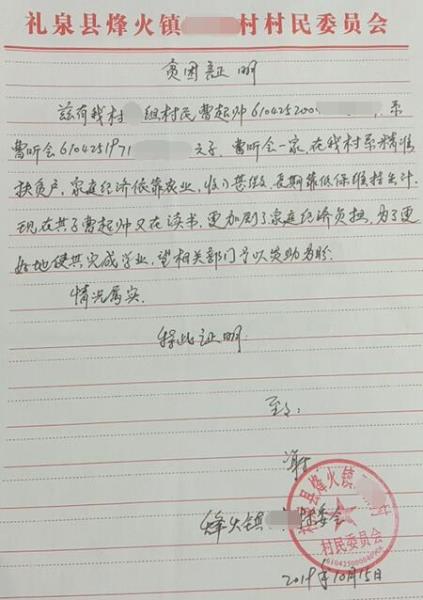 礼泉县烽火镇 村村民委员会
贫困证明
兹有我村 组村民曹起帅6104252000 ,系
曹听会6104251971 之子。曹听会一家,在我村系精准
扶贫户,家庭经济依靠农业,收入甚微,长期靠低保维持生计.
现在其子曹起帅又在读书,更加剧了家庭经济负担,为了更
好地使其完成学业,望相关部门予以资助为盼.
情况属实.
特此证明
至
谢
烽火镇 村委会
礼泉县烽火镇
村民委员会
2019年10月15日